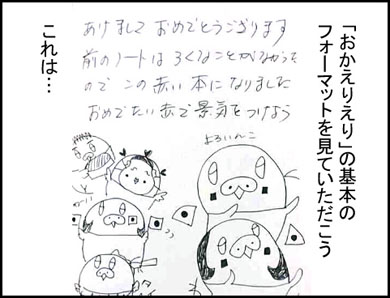 「おかえりえり」の基本の
フォーマットを見ていただこう
あけまして おめでとうござります
前のノートは ろくなことがなかった
ので この赤い本になりました
おめでたい赤で景気をつけよう
よろいんこ
これは…